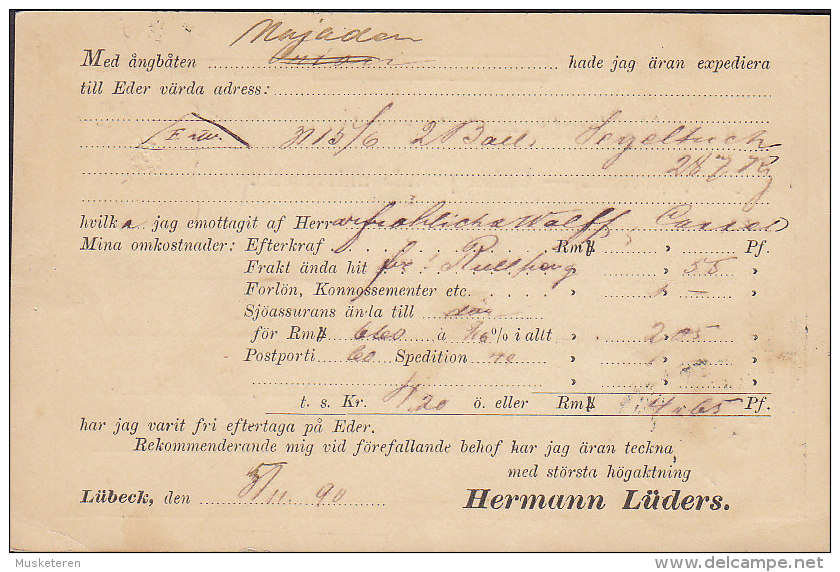 Najaden
Med ångbåten hade jag äran expediera
till Eder värda adress:
2 Ball. Segeltuch
hvilka jag emottagit af Herrar Fröhlich & Wolff, Cassel
Mina omkostnader: Efterkraf Rmk " Pf.
Frakt ända hit " 55 "
Forlön, Konnossementer etc. " "
Sjöassurans ända till
för Rmk 660 à 1/10% i allt " 2.05 "
Postporti 60 Spedition " "
" "
t. s. Kr. ö. eller Rmk 4.65 Pf.
har jag varit fri eftertaga på Eder.
Rekommenderande mig vid förefallande behof har jag äran teckna
med största högaktning
Lübeck, den 5/11. 90 Hermann Lüders.
Musketeren
delcampe.net